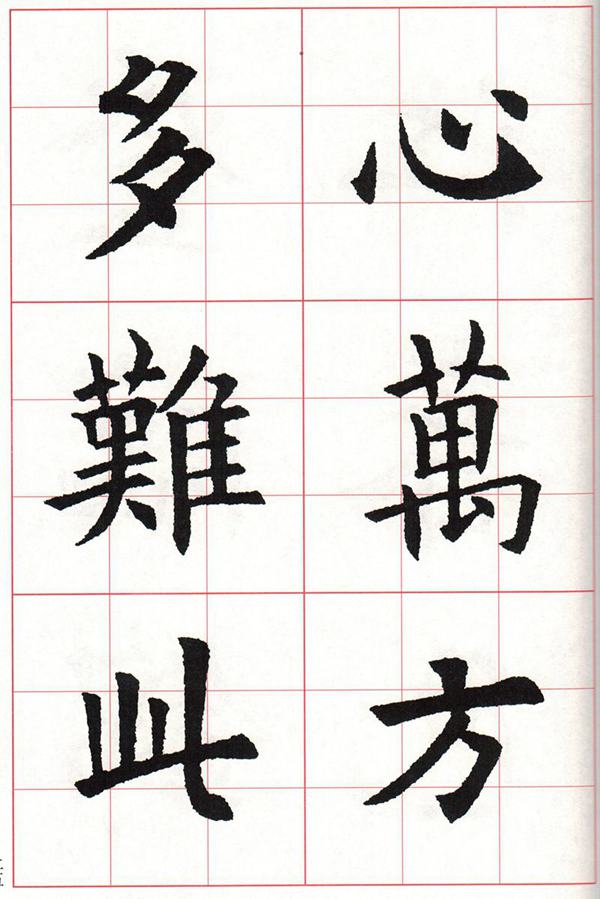 心萬方
多難此